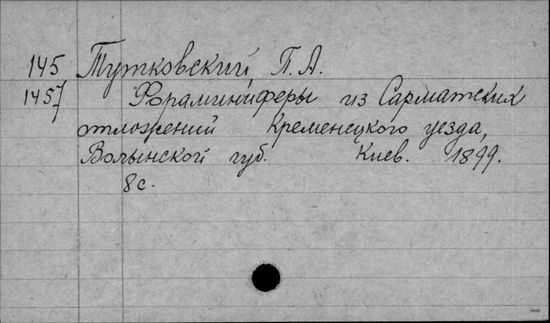 145 Тутковский, П. А.
1457 Фораминиферы из Сарматских
отложений Кременецкого уезда,
Волынской губ. Киев. 1899.
8с.